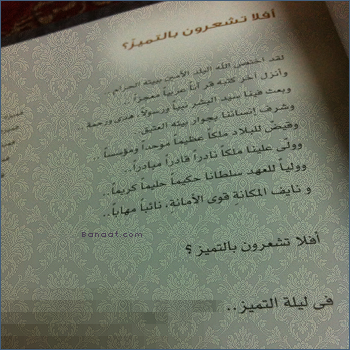 أفلا تشعرون بالتميز؟
لقد اختص الله البلد الأمين ببيته الحرام..
وأنزل آخر كتبه قرآناً عربياً معجزاً..
وبعث فينا سيد البشر نبياً ورسولاً، هدى ورحمة..
وشرف إنساننا بجوار بيته العتيق..
وقيض للبلاد ملكاً عظيماً موحداً ومؤسساً..
وولّى علينا ملكاً نادراً قادراً مبادراً..
وولياً للعهد سلطانا حكيماً حليماً كريماً..
و نايف المكانة قوى الأمانة، نائباً مهاباً..
Banaat.com
أفلا تشعرون بالتميز ؟
فى ليلة التميز..